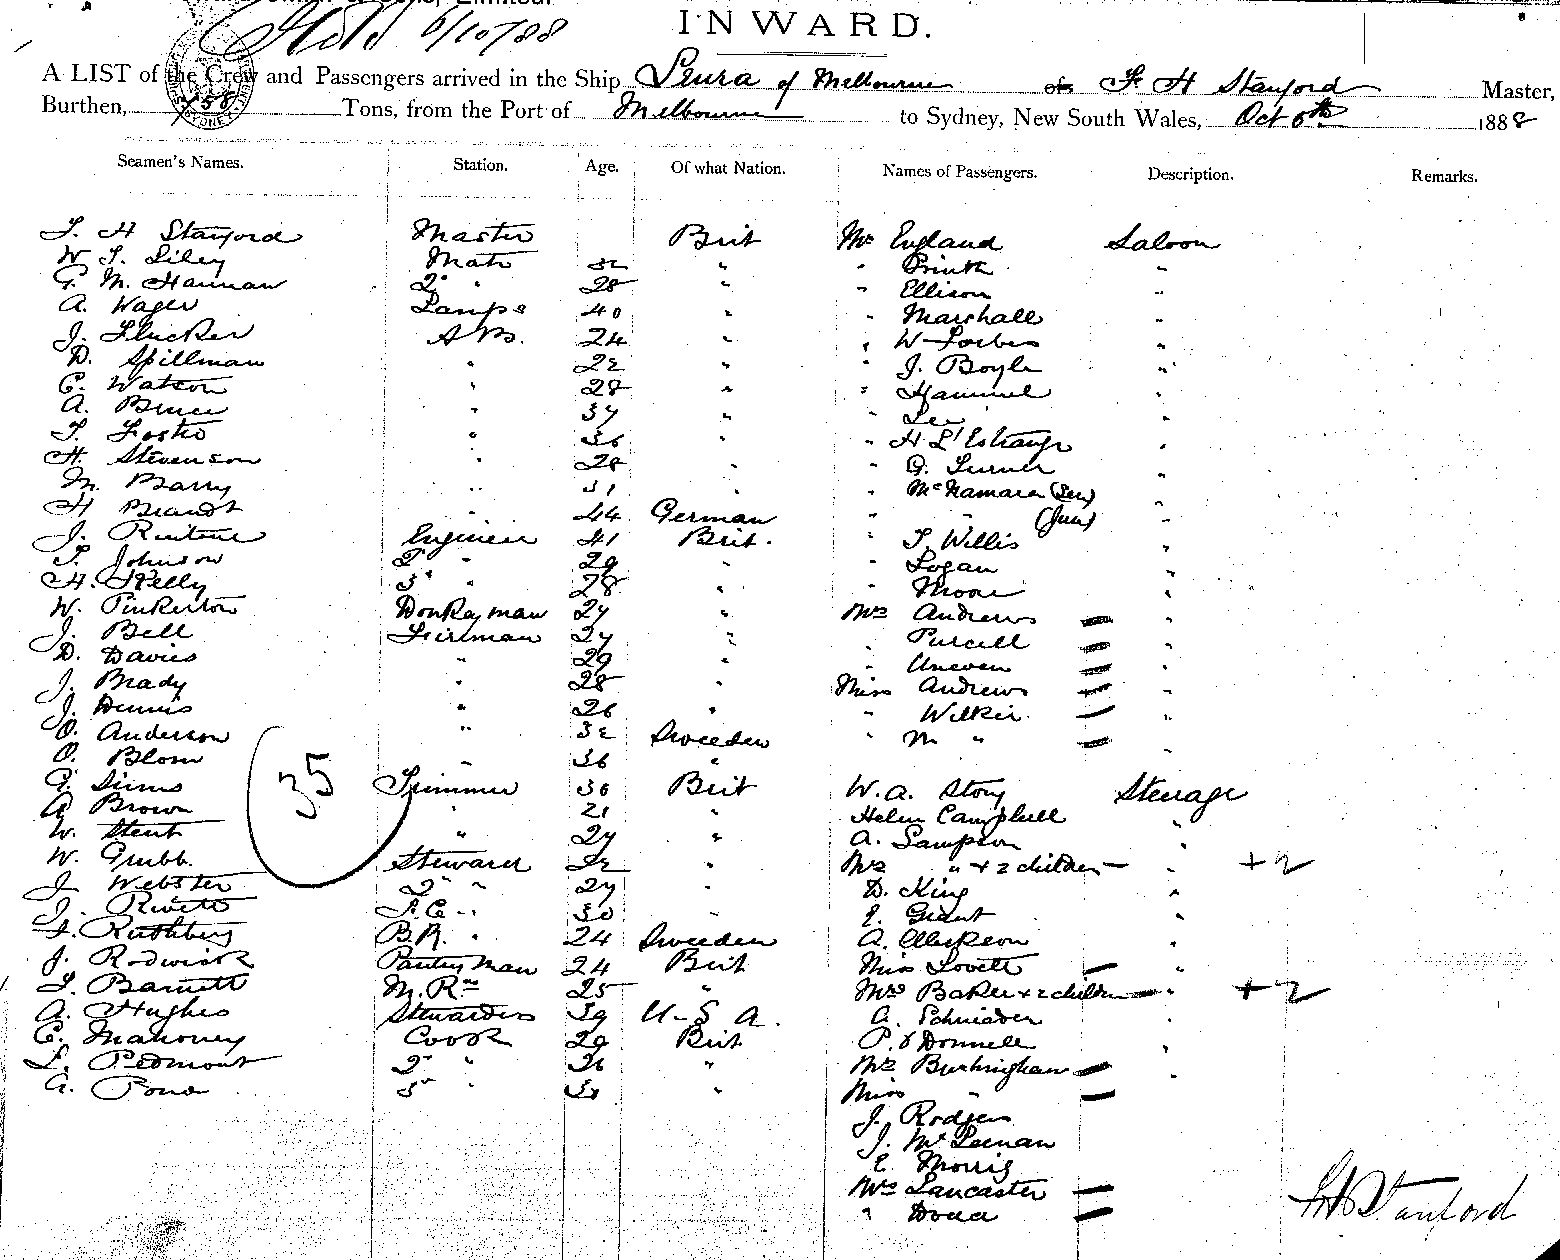 INWARD.
6/10/88
A LIST of the Crew and Passengers arrived in the Ship Leura of Melbourne F H Stanford Master,
Burthen, Tons, from the Port of Melbourne to Sydney, New South Wales, Oct 6th 1888
Seamen's Names. Station. Age. Of what Nation. Names of Passengers. Description. Remarks.
F. H Stanford Master Brit Mr England Saloon
W. Mate 32 " "
G. M. Hannan 2d " 28 " " Ellison "
A. Wager Lamps 40 " " Marshall "
J. Flucker A.B. 24 " " W Forbes "
D. Spillman " 22 " " J. Boyle "
C. Watson " 28 " " Hammel "
A. Bruce " 37 " " Lee "
T. Foster " 36 " " H L'Estrange "
H. Stevenson " 28 " " Turner "
M. Barry " 31 " " McNamara (Sen) "
H Brandt 44 German " " (Jun) "
J. Engineer 41 Brit. " T. Willis "
T. Johnson 2d " 29 " " Logan "
H. Kelly 3d " 28 " " Moore "
W. Pinkerton Donkeyman 27 " Mrs Andrews "
J. Bell Fireman 27 " " Purcell "
D. Davies " 29 " " "
J. Brady " 28 " Miss Andrews "
J. Dennis " 26 " " Wilkie "
O. Anderson " 32 Sweeden " M " "
O. Blom 36 "
G. Sims Trimmer 30 Brit W. A. Story Steerage
A Brown " 21 " Helen Campbell "
W. Stent " 27 " A. Sampson "
W. Grubb. Steward 32 " Mrs " + 2 children " +2
J Webster 2d " 27 " D. King "
J. F.C. " 30 " E. Grant "
B.R. " 24 Sweeden A. "
J. Rodwick Pantry man 24 Brit Miss Lovett "
Barnett M. Rm 25 " Mrs Baker + 2 children " +2
A. Hughes Stewardess 39 U.S.A. "
C. Mahoney Cook 29 Brit P. O'Donnell "
L. Pedmont 2d " 26 " Mrs Buckingham "
A. Pond 3d " 31 " Miss "
J. Rodgers
J. McLeenan
E. Morris
Mrs Lancaster
"
35
F H Stanford